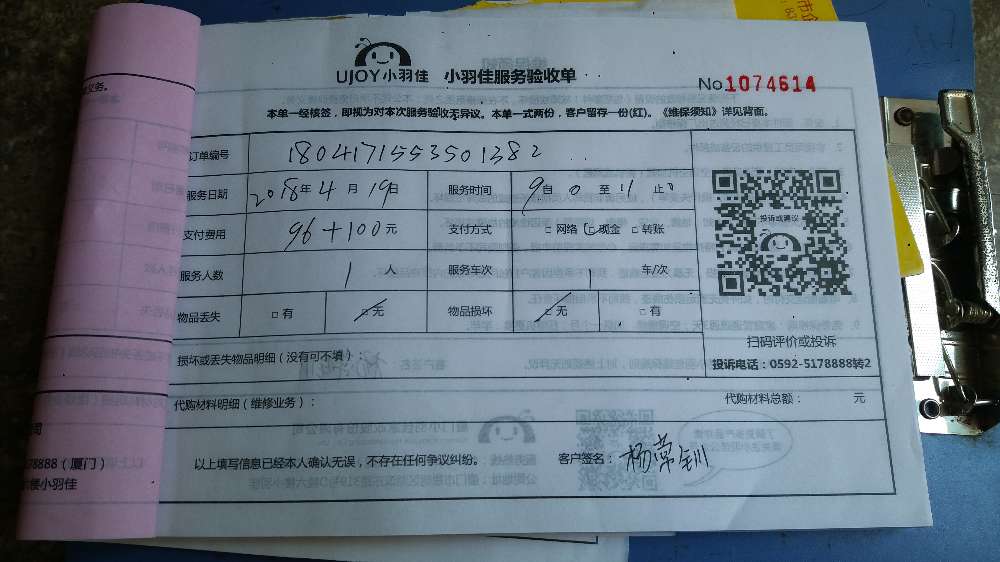 UJOY小羽佳 小羽佳服务验收单
No.1074614
本单一经核签，即视为对本次服务验收无异议。本单一式两份，客户留存一份(红)。《维保须知》详见背面。
订单编号 1804171553501382
服务日期 2018年4月19日 服务时间 9自0至11止
支付费用 96+100元 支付方式 □网络 □现金 □转账
服务人数 1人 服务车次 1车/次
物品丢失 □有 □无 物品损坏 □无 □有
投诉或建议
扫码评价或投诉
投诉电话：0592-5178888转2
损坏或丢失物品明细（没有可不填）：
代购材料明细（维修业务）： 代购材料总额： 元
以上填写信息已经本人确认无误，不存在任何争议纠纷。 客户签名：杨常钏
义务。
司
78888（厦门）
楼小羽佳